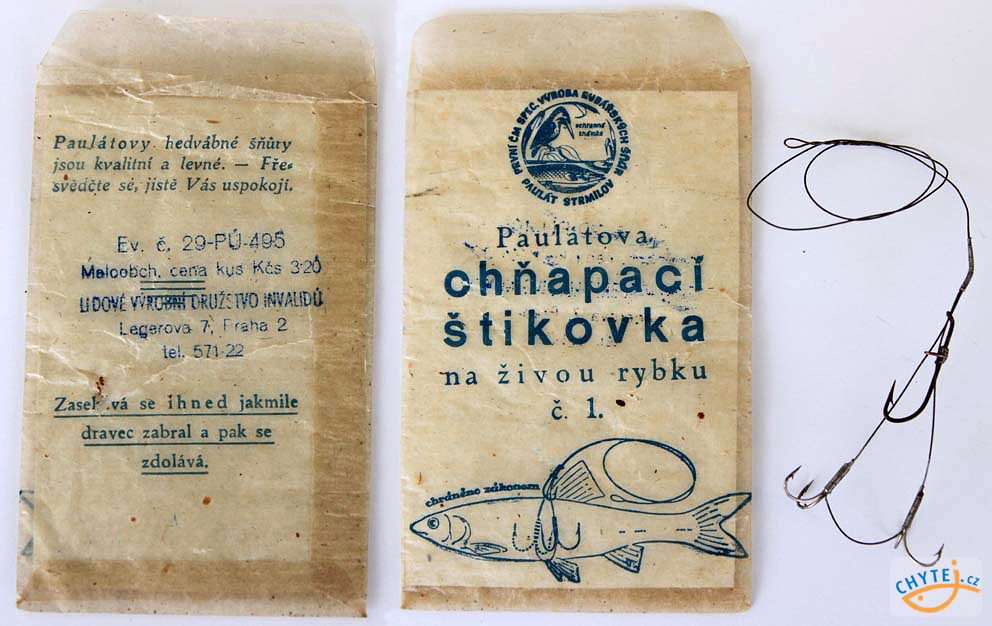 Paulátovy hedvábné šňůry
jsou kvalitní a levné. — Pře-
svědčte se, jistě Vás uspokojí.
Ev. č. 29-PÚ-495
Maloobch. cena kus Kčs 3·20
LIDOVÉ VÝROBNÍ DRUŽSTVO INVALIDŮ
Legerova 7, Praha 2
tel. 571-22
vá se ihned jakmile
dravec zabral a pak se
zdolává.
PRVNÍ ČM SPEC. VÝROBA RYBÁŘSKÝCH ŠŇŮR
ochranná
známka
PAULÁT STRMILOV
Paulátova
chňapací
štikovka
na živou rybku
č. 1.
chráněno zákonem
CHYTEJ.cz